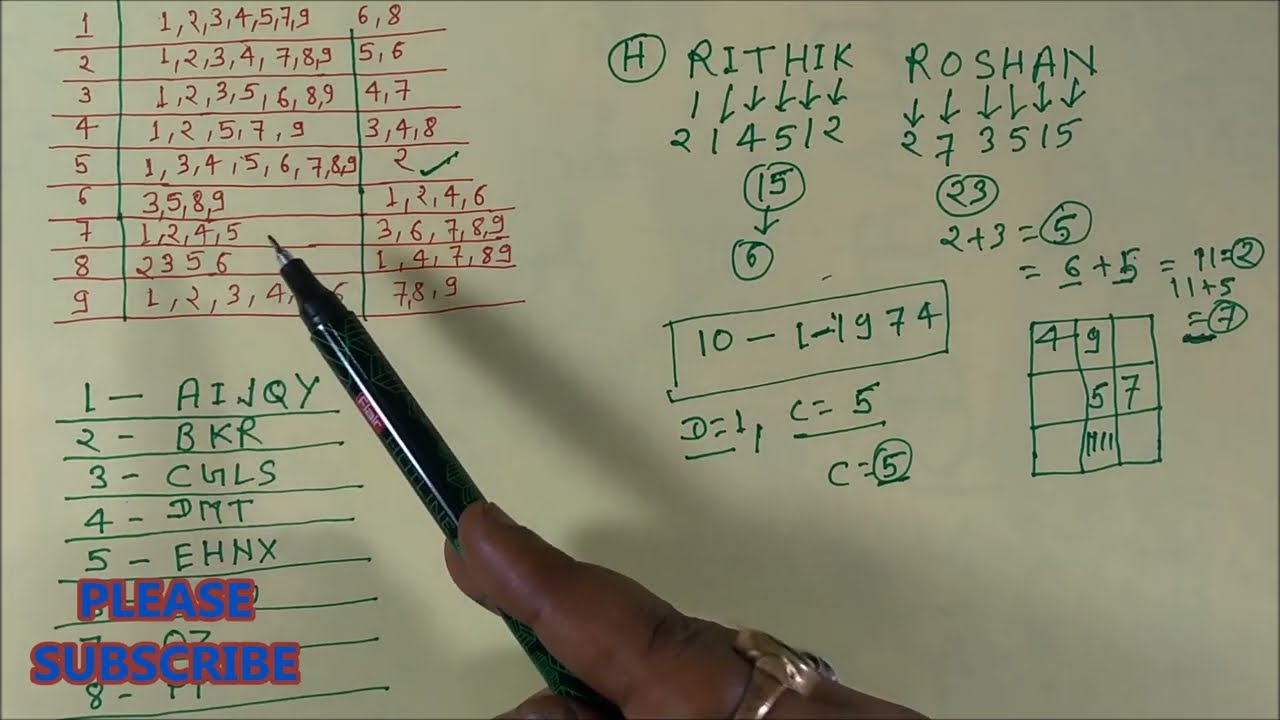 1 1,2,3,4,5,7,9 6,8
2 1,2,3,4,7,8,9 5,6
3 1,2,3,5,6,8,9 4,7
4 1,2,5,7,9 3,4,8
5 1,3,4,5,6,7,8,9 2 ✓
6 3,5,8,9 1,2,4,6
7 1,2,4,5 3,6,7,8,9
8 2 3 5 6 1,4,7,89
9 1,2,3,4, 6 7,8,9
1 — AIJQY
2 - BKR
3 - CGLS
4 - DMT
5 - EHNX
PLEASE
SUBSCRIBE
8 -
H RITHIK ROSHAN
2 1 4 5 1 2 2 7 3 5 1 5
15 23
6 2+3 = 5
= 6 + 5 = 11 = 2
11+5
= 7
10 - 1 - 1974
D=1, C= 5
C= 5
4 9
5 7
1111